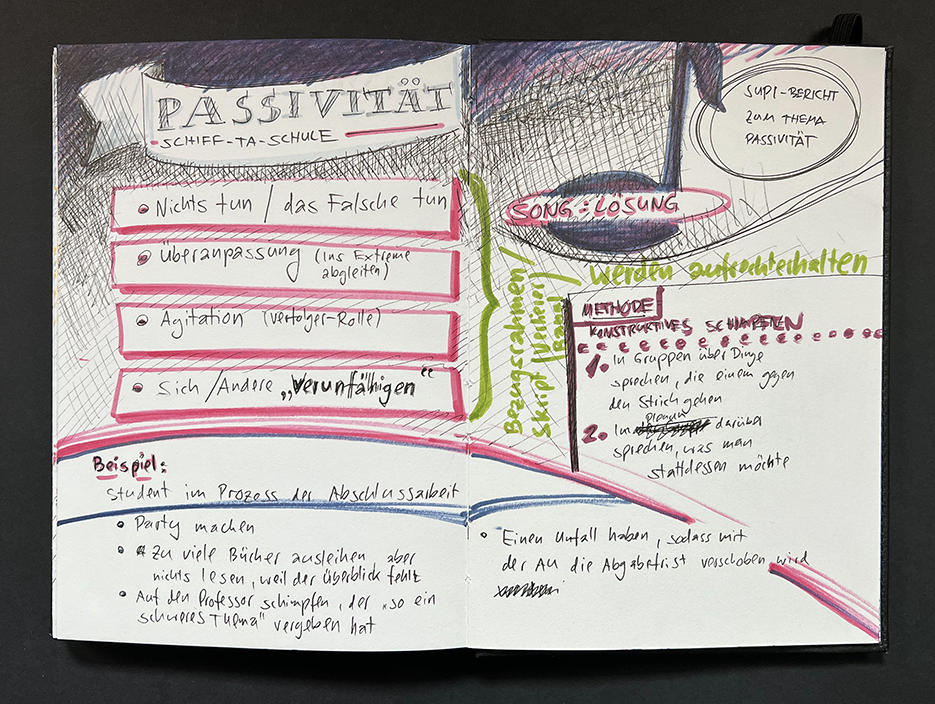 PASSIVITÄT
SCHIFF-TA-SCHULE
Nichts tun / das Falsche tun
Überanpassung (ins Extreme
abgleiten)
Agitation (Verfolger-Rolle)
Sich / Andere „Verunfähigen“
Bezugsrahmen /
Skript (Verlierer /
Banal)
werden aufrechterhalten
SUPI-BERICHT
ZUM THEMA
PASSIVITÄT
SONG = LÖSUNG
METHODE
KONSTRUKTIVES SCHIMPFEN
1. In Gruppen über Dinge
sprechen, die einem gegen
den Strich gehen
2. Im Plenum darüber
sprechen, was man
stattdessen möchte
Beispiel:
Student im Prozess der Abschlussarbeit
Party machen
Zu viele Bücher ausleihen aber
nichts lesen, weil der Überblick fehlt
Auf den Professor schimpfen, der „so ein
schweres Thema“ vergeben hat
Einen Unfall haben, sodass mit
der AU die Abgabefrist verschoben wird